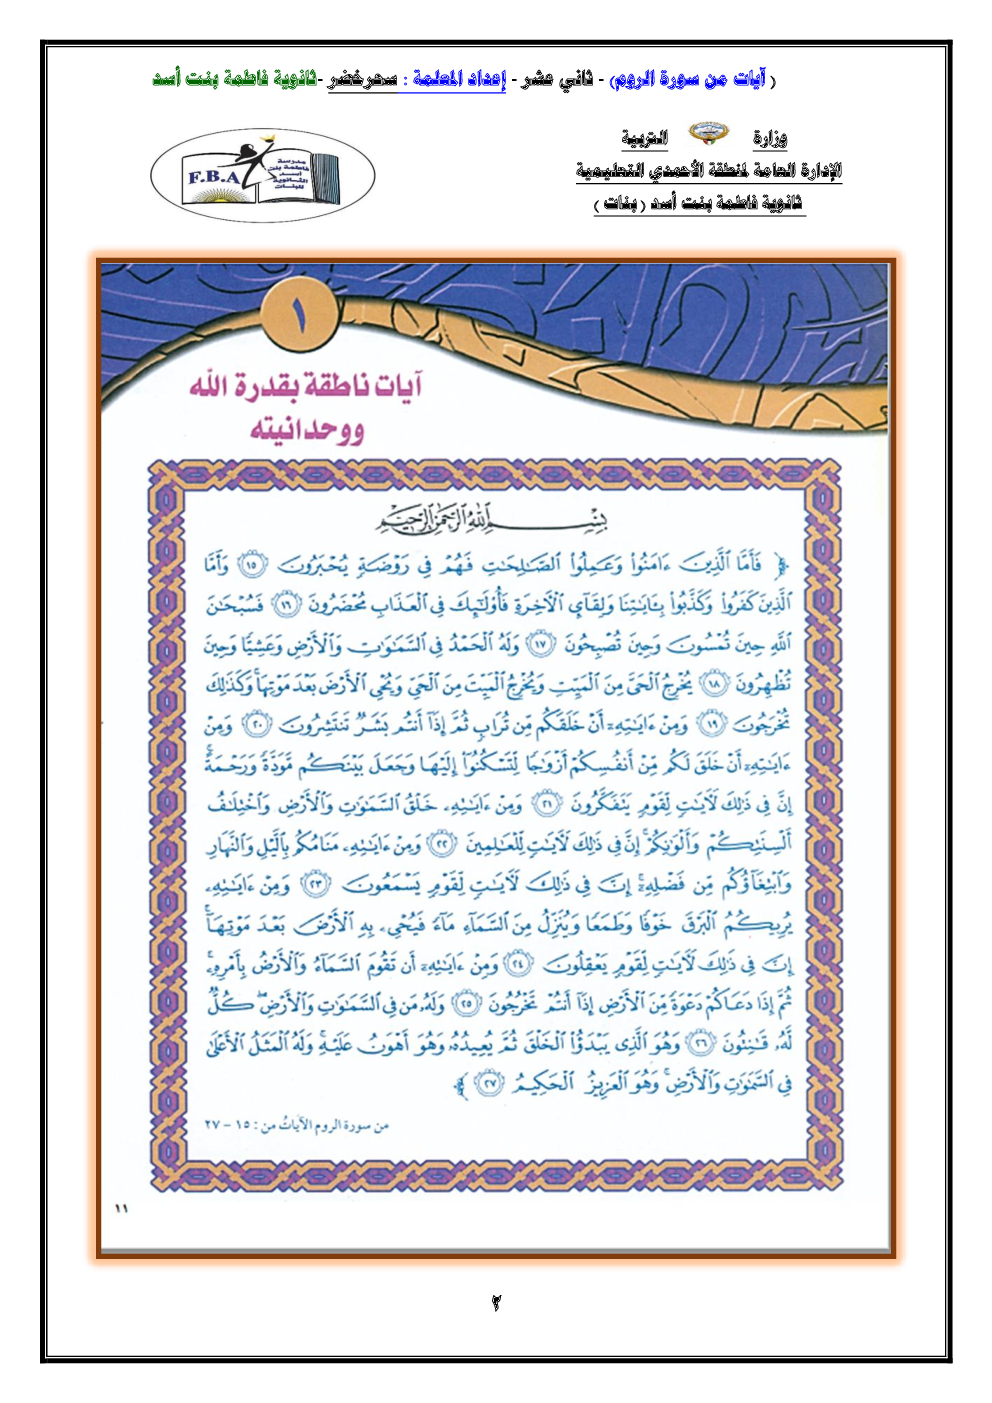 ( آيات من سورة الروم) - ثاني عشر - إعداد المعلمة : سحر خضر -ثانوية فاطمة بنت أسد
وزارة التربية
الإدارة العامة لمنطقة الأحمدي التعليمية
ثانوية فاطمة بنت أسد ( بنات )
F.B.A
مدرسة
فاطمة بنت
أسد
الثانوية
للبنات
١
آيات ناطقة بقدرة الله
ووحدانيته
بِسْمِ اللَّهِ الرَّحْمَٰنِ الرَّحِيمِ
﴿ فَأَمَّا الَّذِينَ ءَامَنُوا وَعَمِلُوا الصَّالِحَاتِ فَهُمْ فِي رَوْضَةٍ يُحْبَرُونَ ١٥ وَأَمَّا
الَّذِينَ كَفَرُوا وَكَذَّبُوا بِـَٔايَاتِنَا وَلِقَآيِ الْآخِرَةِ فَأُولَٰٓئِكَ فِي الْعَذَابِ مُحْضَرُونَ ١٦ فَسُبْحَانَ
اللَّهِ حِينَ تُمْسُونَ وَحِينَ تُصْبِحُونَ ١٧ وَلَهُ الْحَمْدُ فِي السَّمَاوَاتِ وَالْأَرْضِ وَعَشِيًّا وَحِينَ
تُظْهِرُونَ ١٨ يُخْرِجُ الْحَيَّ مِنَ الْمَيِّتِ وَيُخْرِجُ الْمَيِّتَ مِنَ الْحَيِّ وَيُحْيِ الْأَرْضَ بَعْدَ مَوْتِهَا ۚ وَكَذَٰلِكَ
تُخْرَجُونَ ١٩ وَمِنْ ءَايَاتِهِ أَنْ خَلَقَكُم مِّن تُرَابٍ ثُمَّ إِذَا أَنتُم بَشَرٌ تَنتَشِرُونَ ٢٠ وَمِنْ
ءَايَاتِهِ أَنْ خَلَقَ لَكُم مِّنْ أَنفُسِكُمْ أَزْوَاجًا لِّتَسْكُنُوا إِلَيْهَا وَجَعَلَ بَيْنَكُم مَّوَدَّةً وَرَحْمَةً ۚ
إِنَّ فِي ذَٰلِكَ لَآيَاتٍ لِّقَوْمٍ يَتَفَكَّرُونَ ٢١ وَمِنْ ءَايَاتِهِ خَلْقُ السَّمَاوَاتِ وَالْأَرْضِ وَاخْتِلَافُ
أَلْسِنَتِكُمْ وَأَلْوَانِكُمْ ۚ إِنَّ فِي ذَٰلِكَ لَآيَاتٍ لِّلْعَالِمِينَ ٢٢ وَمِنْ ءَايَاتِهِ مَنَامُكُم بِالَّيْلِ وَالنَّهَارِ
وَابْتِغَاؤُكُم مِّن فَضْلِهِ ۚ إِنَّ فِي ذَٰلِكَ لَآيَاتٍ لِّقَوْمٍ يَسْمَعُونَ ٢٣ وَمِنْ ءَايَاتِهِ
يُرِيكُمُ الْبَرْقَ خَوْفًا وَطَمَعًا وَيُنَزِّلُ مِنَ السَّمَاءِ مَاءً فَيُحْيِ بِهِ الْأَرْضَ بَعْدَ مَوْتِهَا ۚ
إِنَّ فِي ذَٰلِكَ لَآيَاتٍ لِّقَوْمٍ يَعْقِلُونَ ٢٤ وَمِنْ ءَايَاتِهِ أَن تَقُومَ السَّمَاءُ وَالْأَرْضُ بِأَمْرِهِ ۚ
ثُمَّ إِذَا دَعَاكُمْ دَعْوَةً مِّنَ الْأَرْضِ إِذَا أَنتُمْ تَخْرُجُونَ ٢٥ وَلَهُ مَن فِي السَّمَاوَاتِ وَالْأَرْضِ ۖ كُلٌّ
لَّهُ قَانِتُونَ ٢٦ وَهُوَ الَّذِي يَبْدَؤُا الْخَلْقَ ثُمَّ يُعِيدُهُ وَهُوَ أَهْوَنُ عَلَيْهِ ۚ وَلَهُ الْمَثَلُ الْأَعْلَىٰ
فِي السَّمَاوَاتِ وَالْأَرْضِ ۚ وَهُوَ الْعَزِيزُ الْحَكِيمُ ٢٧ ﴾
من سورة الروم الآياتُ من : ١٥ – ٢٧
١١
٢